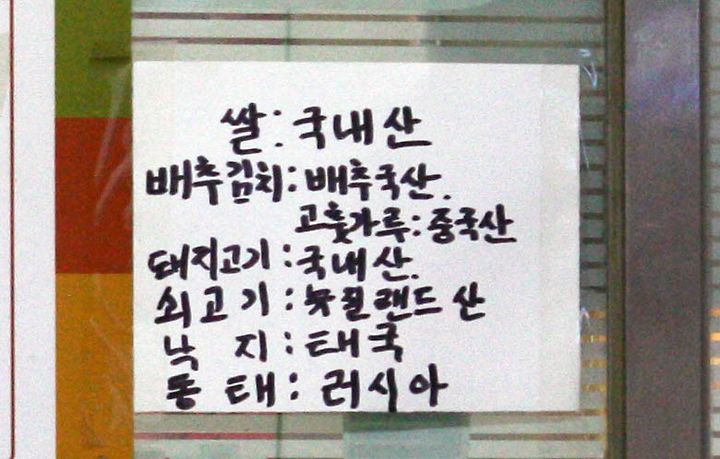 쌀: 국내산
배추김치: 배추국산.
고춧가루: 중국산
돼지고기: 국내산.
쇠고기: 뉴질랜드산
낙지: 태국
동태: 러시아